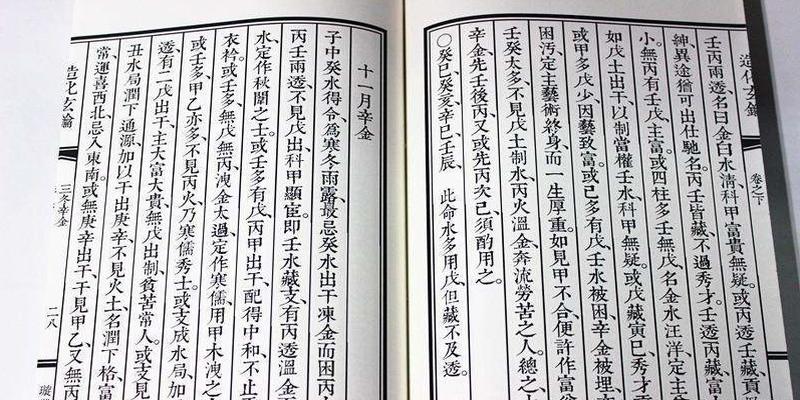 造化玄鑰
卷之下
壬丙兩透、名曰金白水清、科甲富貴無疑。或丙透壬藏、貢
紳、異途猶可出仕馳名。丙壬皆藏、不過秀才。壬透丙藏、富
小。無丙有壬戊、主富。或四柱多壬無戊、名金水汪洋、定主
如戊土出干、以制當權壬水、科甲無疑。或戊藏寅巳、秀才
或甲多戊少、因藝致富。或己多有戊、壬水被困、辛金被埋、
困汚、定主藝術終身、而一生厚重。如見甲不合、便許作富
壬癸太多、不見戊土制水、丙火溫金、奔流勞苦之人。總之
辛金先壬後丙、又或先丙次己、須酌用之。
○癸巳、癸亥、辛巳、壬辰、 此命水多用戊、但藏不及透。
十一月辛金
子中癸水得令、爲寒冬雨露、最忌癸水出干凍金、而困丙
丙壬兩透、不見戊出、科甲顯宦。即壬水藏支、有丙透溫金
水、定作秋闈之士。或壬多有戊、丙甲出干、配得中和、不止
衣衿。或壬多、無戊無丙、洩金太過、定作寒儒、用甲木洩之
或壬多、甲乙亦多、不見丙火、乃寒儒秀士。或支成水局、加
透、有二戊出干、主大富大貴、無戊出制、貧苦常人。或支見
丑水局、潤下通源、加以干出庚辛、不見火土、名潤下格、富
常、運喜西北、忌入東南。或無庚辛出干、干見甲乙、又無丙
造化玄鑰
三冬辛金
二八